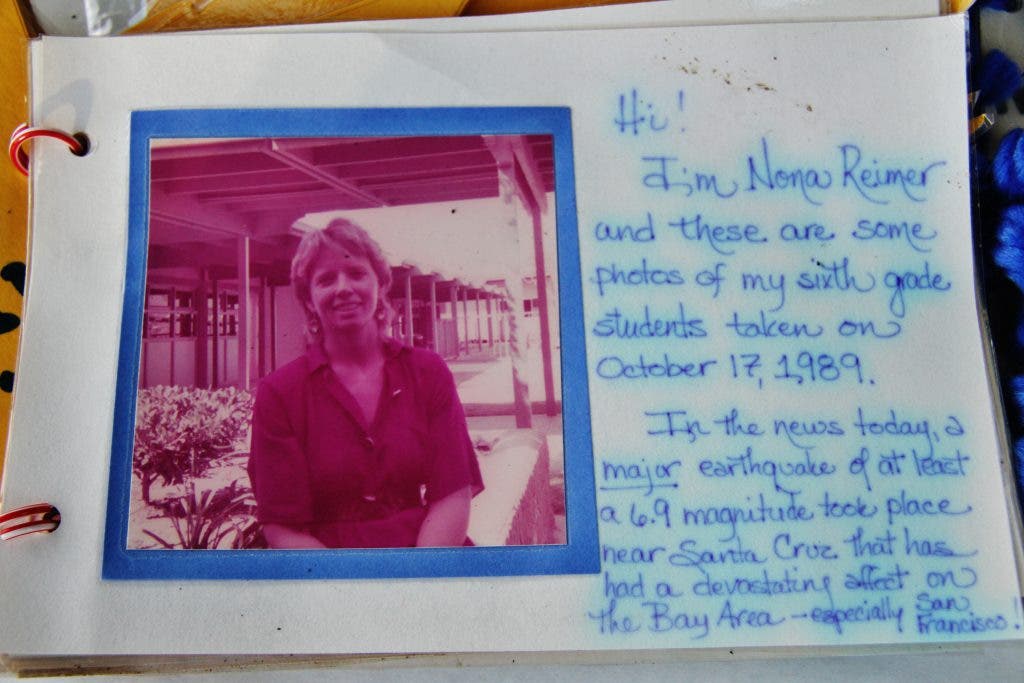 Hi!
I'm Nona Reimer
and these are some
photos of my sixth grade
students taken on
October 17, 1989.
In the news today, a
major earthquake of at least
a 6.9 magnitude took place
near Santa Cruz that has
had a devastating affect on
the Bay Area - especially San
Francisco!